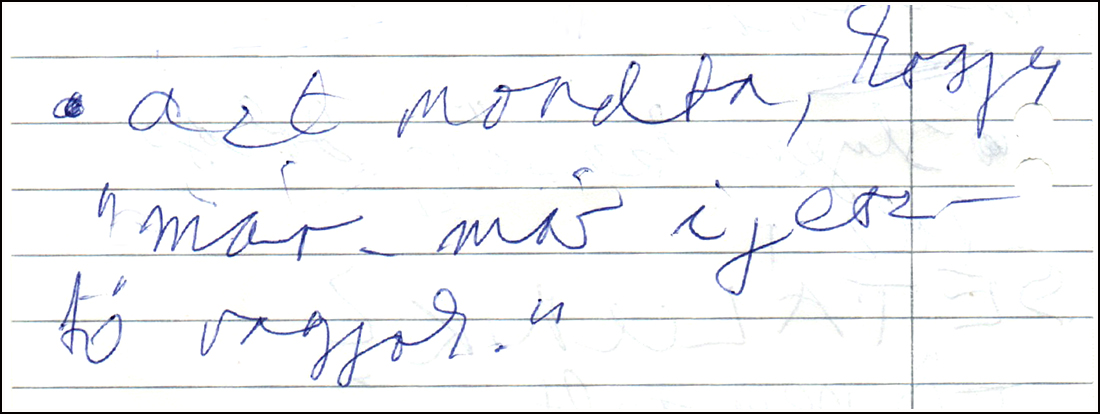 • azt mondta, hogy
"már-már ijesz-
tő vagyok."